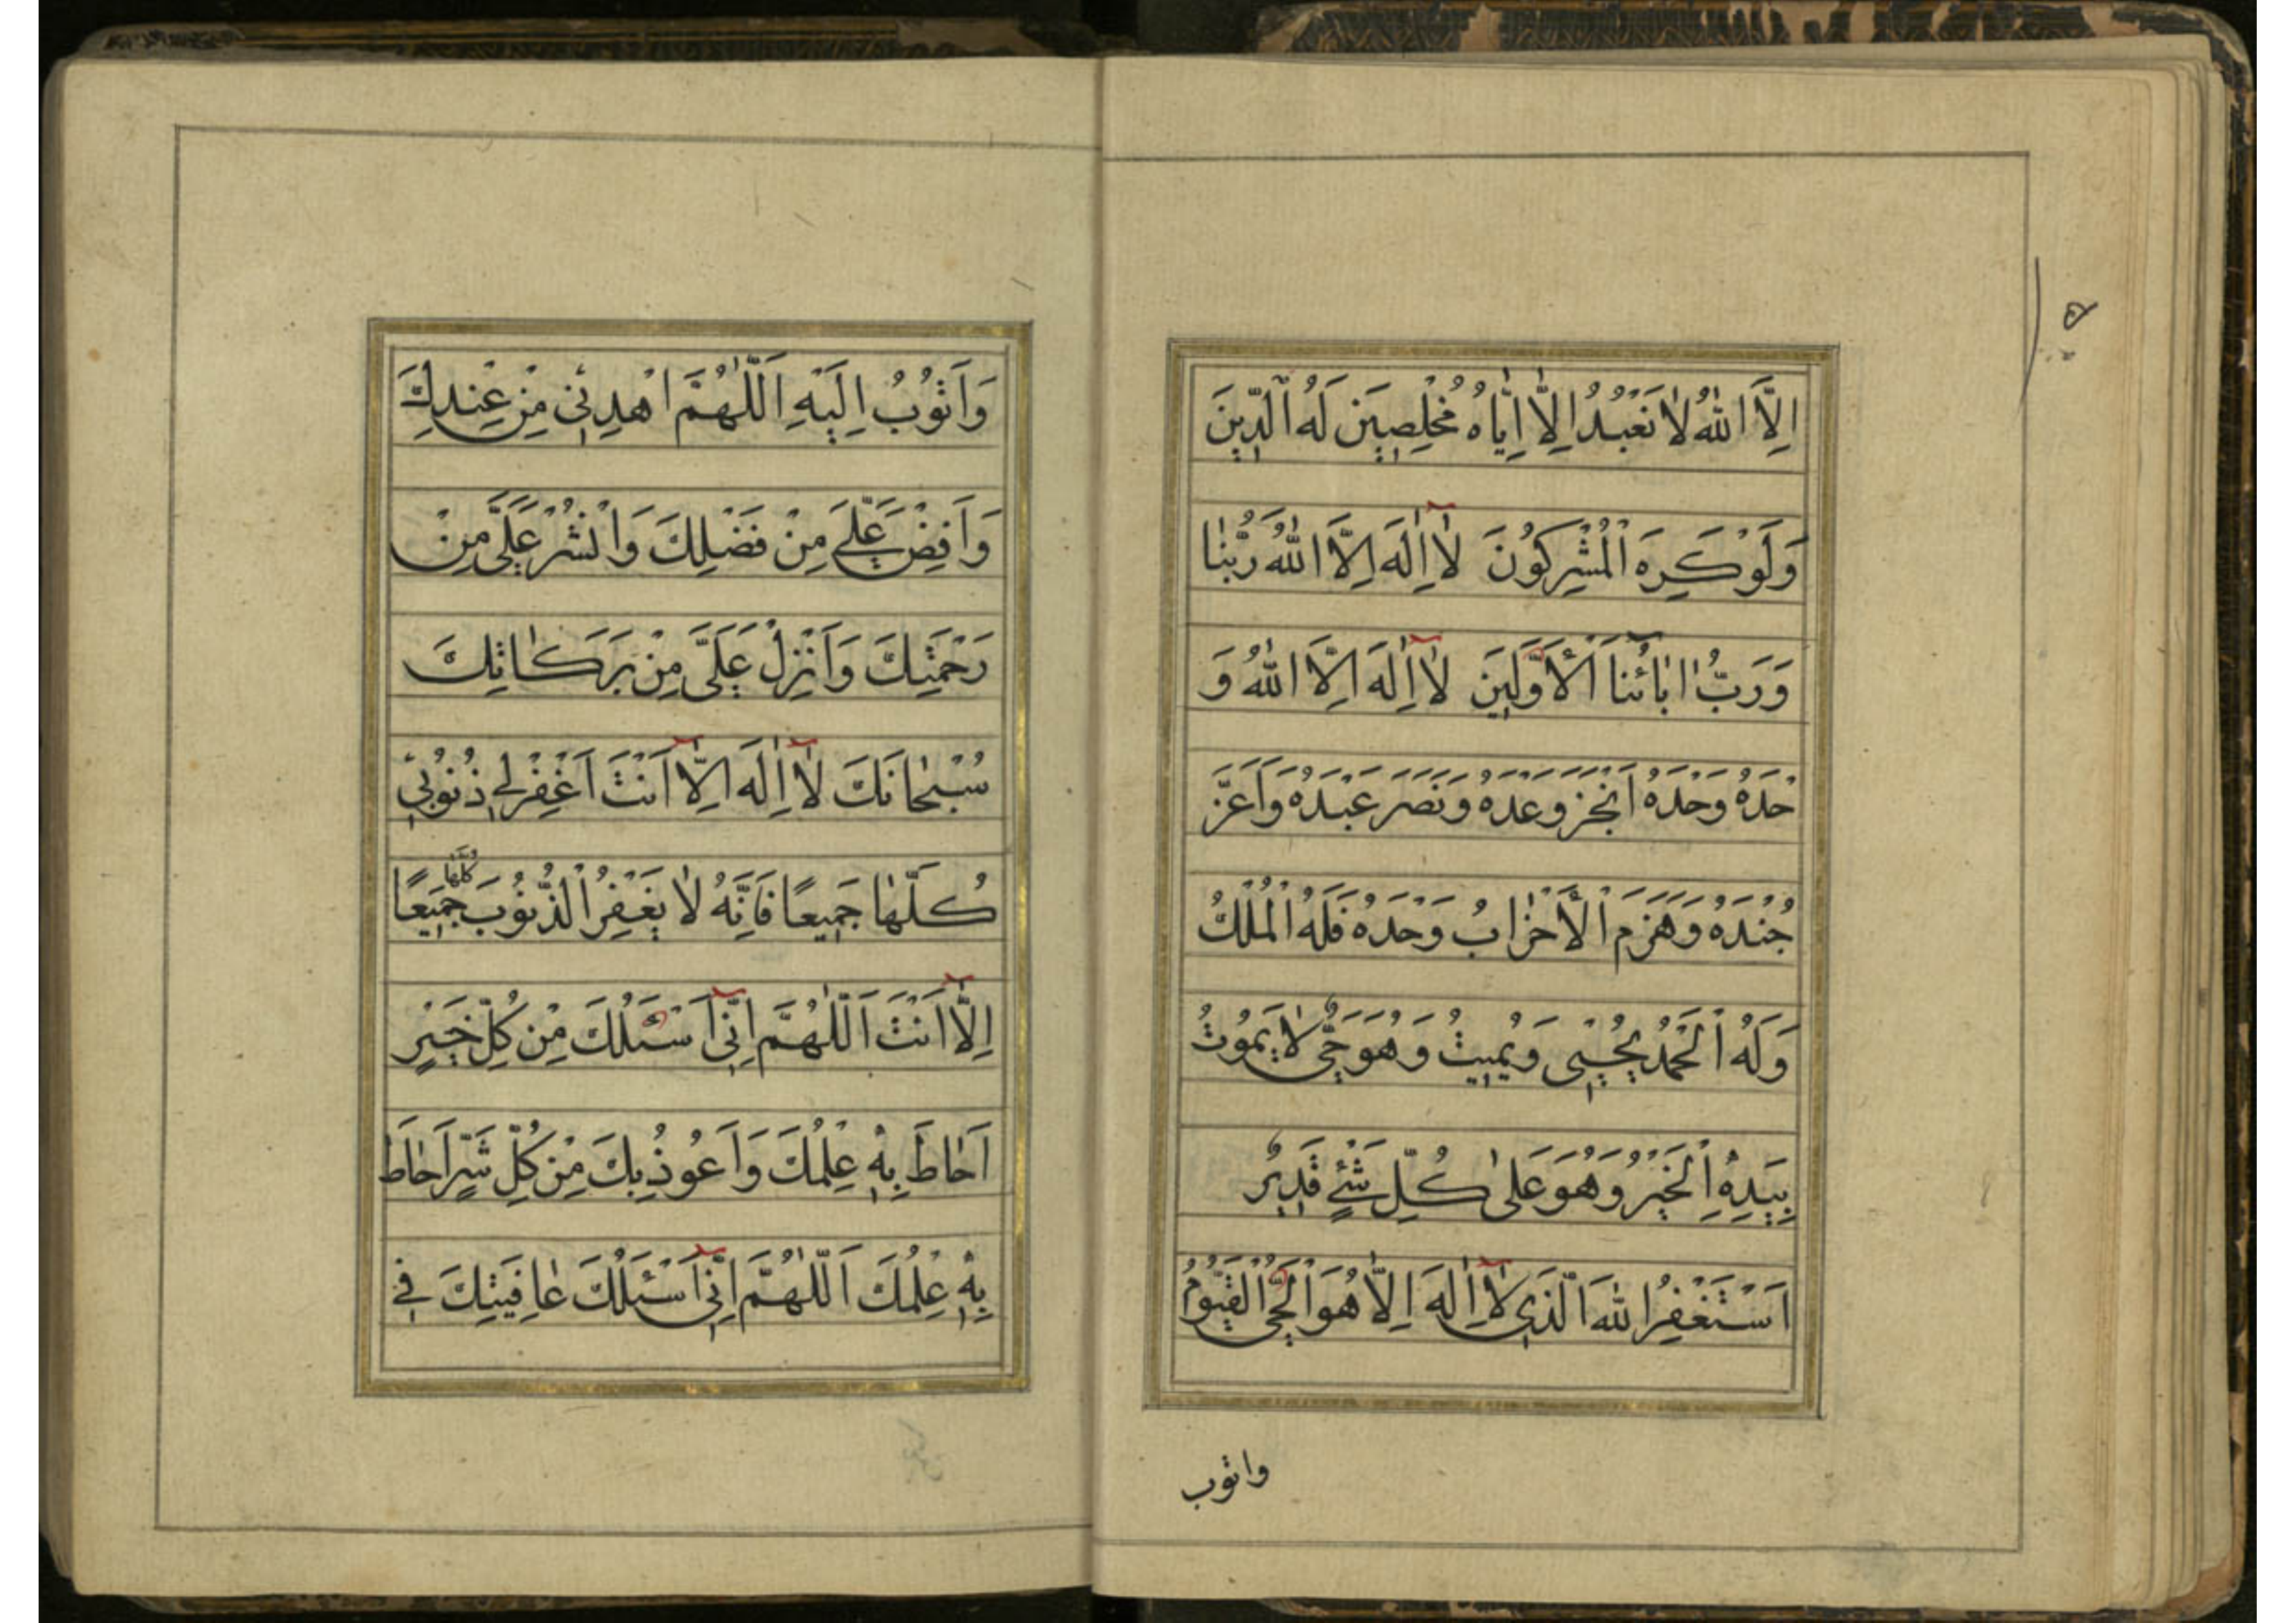 اِلَّا اللهُ لَا نَعْبُدُ اِلَّا اِيَّاهُ مُخْلِصِينَ لَهُ الدِّينَ
وَلَوْ كَرِهَ الْمُشْرِكُونَ لَا اِلٰهَ اِلَّا اللهُ رَبُّنَا
وَرَبُّ اٰبَائِنَا الْاَوَّلِينَ لَا اِلٰهَ اِلَّا اللهُ وَ
حْدَهُ وَحْدَهُ وَحْدَهُ اَنْجَزَ وَعْدَهُ وَنَصَرَ عَبْدَهُ وَاَعَزَّ
جُنْدَهُ وَهَزَمَ الْاَحْزَابَ وَحْدَهُ فَلَهُ الْمُلْكُ
وَلَهُ الْحَمْدُ يُحْيِي وَيُمِيتُ وَهُوَ حَيٌّ لَا يَمُوتُ
بِيَدِهِ الْخَيْرُ وَهُوَ عَلٰى كُلِّ شَيْءٍ قَدِيرٌ
اَسْتَغْفِرُ اللهَ الَّذِي لَا اِلٰهَ اِلَّا هُوَ الْحَيُّ الْقَيُّومُ
واتوب
وَاَتُوبُ اِلَيْهِ اَللّٰهُمَّ اهْدِنِي مِنْ عِنْدِكَ
وَاَفِضْ عَلَيَّ مِنْ فَضْلِكَ وَانْشُرْ عَلَيَّ مِنْ
رَحْمَتِكَ وَاَنْزِلْ عَلَيَّ مِنْ بَرَكَاتِكَ
سُبْحَانَكَ لَا اِلٰهَ اِلَّا اَنْتَ اغْفِرْ لِي ذُنُوبِي
كُلَّهَا جَمِيعًا فَاِنَّهُ لَا يَغْفِرُ الذُّنُوبَ كُلَّهَا جَمِيعًا
اِلَّا اَنْتَ اَللّٰهُمَّ اِنِّي اَسْئَلُكَ مِنْ كُلِّ خَيْرٍ
اَحَاطَ بِهِ عِلْمُكَ وَاَعُوذُ بِكَ مِنْ كُلِّ شَرٍّ اَحَاطَ
بِهِ عِلْمُكَ اَللّٰهُمَّ اِنِّي اَسْئَلُكَ عَافِيَتَكَ فِي